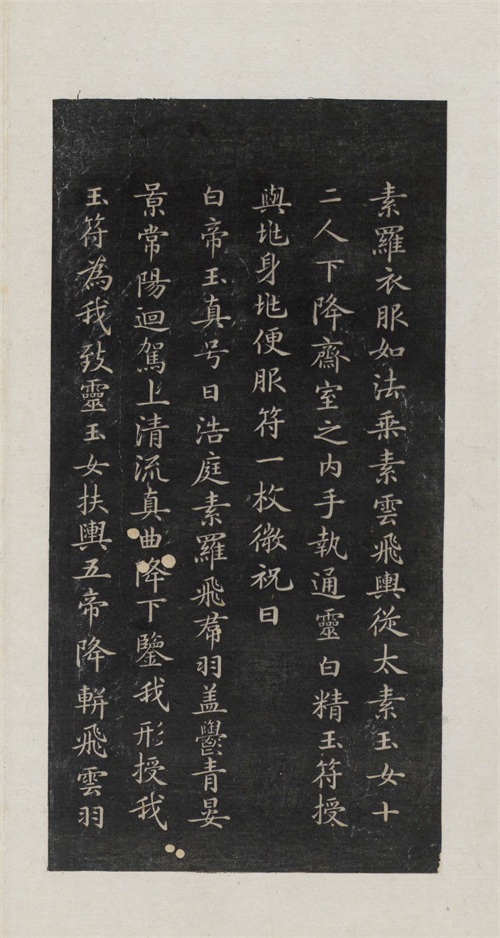 素羅衣服如法乘素雲飛輿從太素玉女十
二人下降齋室之内手執通靈白精玉符授
與兆身兆便服符一枚微祝曰
白帝玉真号曰浩庭素羅飛帬羽盖鬱青晏
景常陽迴駕上清流真曲降下鑒我形授我
玉符為我致靈玉女扶輿五帝降軿飛雲羽